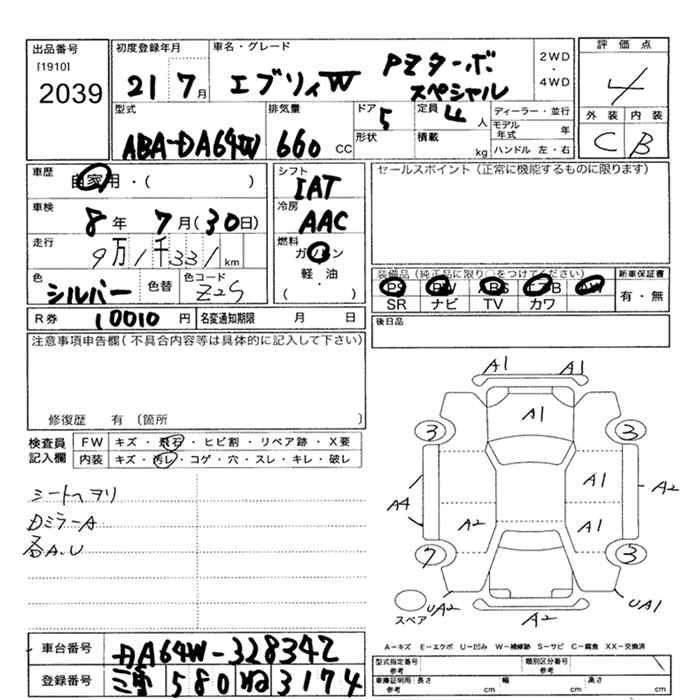 出品番号 初度登録年月 車名・グレード 2WD・4WD 評価点
[1910]
2039 21 7月 エブリィW PZターボスペシャル 4
型式 排気量 ドア 定員 ディーラー・並行 外装 内装
ABA-DA64W 660 CC 5 4人 モデル年式 年 C B
形状 積載 kg ハンドル 左・右
車歴 自家用・( ) シフト IAT セールスポイント(正常に機能するものに限ります)
車検 8年 7月(30日) 冷房 AAC
走行 9万1千331km 燃料 ガソリン
軽・油
( )
色 シルバー 色替 色コード Z2S
装備品(純正品に限り○をつけてください) 新車保証書
PS PW ABS エアB AW 有・無
SR ナビ TV カワ
R券 10010円 名変通知期限 月 日 後日品
注意事項申告欄(不具合内容等は具体的に記入して下さい)
修復歴 有 〔箇所 〕
検査員記入欄 FW キズ・飛石・ヒビ割・リペア跡・X要
内装 キズ・汚レ・コゲ・穴・スレ・キレ・破レ
シートヘタリ
DミラーA
各A.U
A1 A1
A1
3 3
A1
A4 A2
A2 A1
7 3
スペア UA2 A2 UA1
A-キズ E-エクボ U-凹み W-補修跡 S-サビ C-腐食 XX-交換済
車台番号 DA64W-328342
登録番号 580 ね 3174
型式指定番号 類別区分番号
参考 参考
車庫証明用 長さ 幅 高さ
参考 cm cm cm